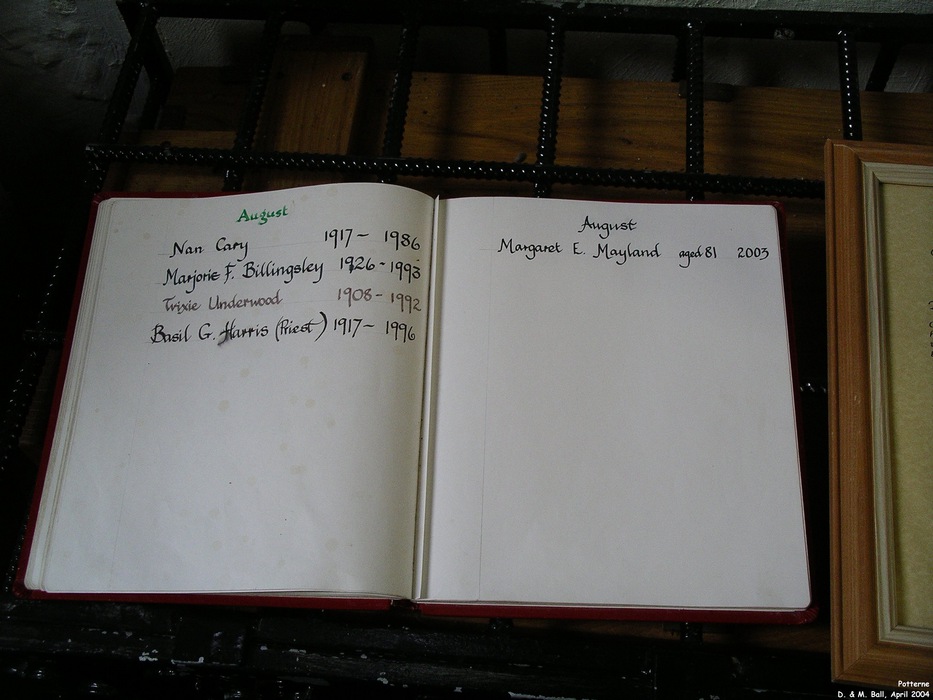 August
Nan Cary 1917 - 1986
Marjorie F. Billingsley 1926 - 1993
Trixie Underwood 1908 - 1992
Basil G. Harris (Priest) 1917 - 1996
August
Margaret E. Mayland aged 81 2003
Potterne
D. & M. Ball, April 2004